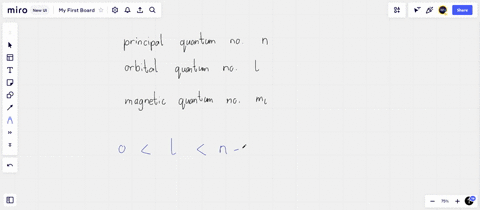 miro New UI My First Board Share
principal quantum no. n
orbital quantum no. l
magnetic quantum no. mL
0 < l < n -